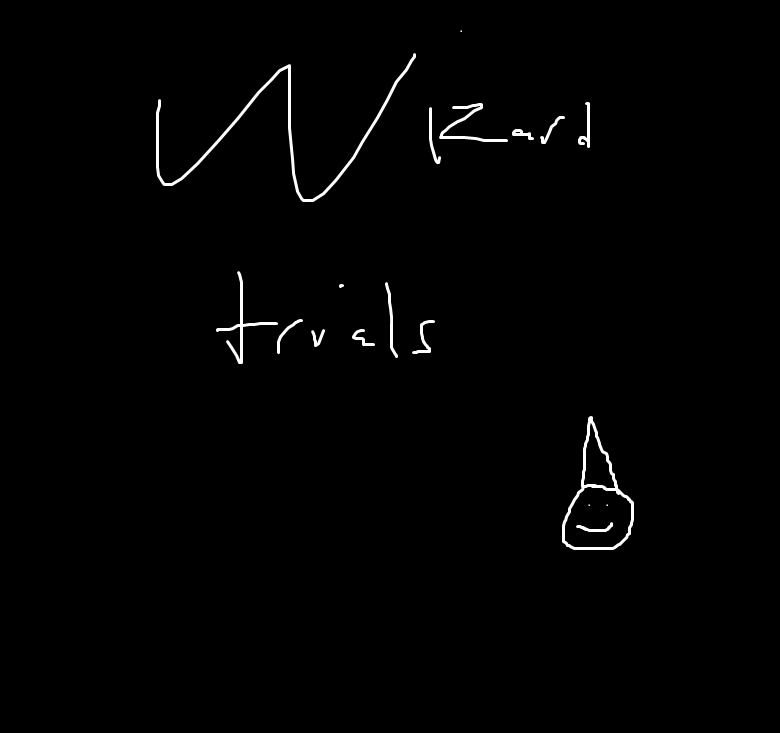 Wizard
trials